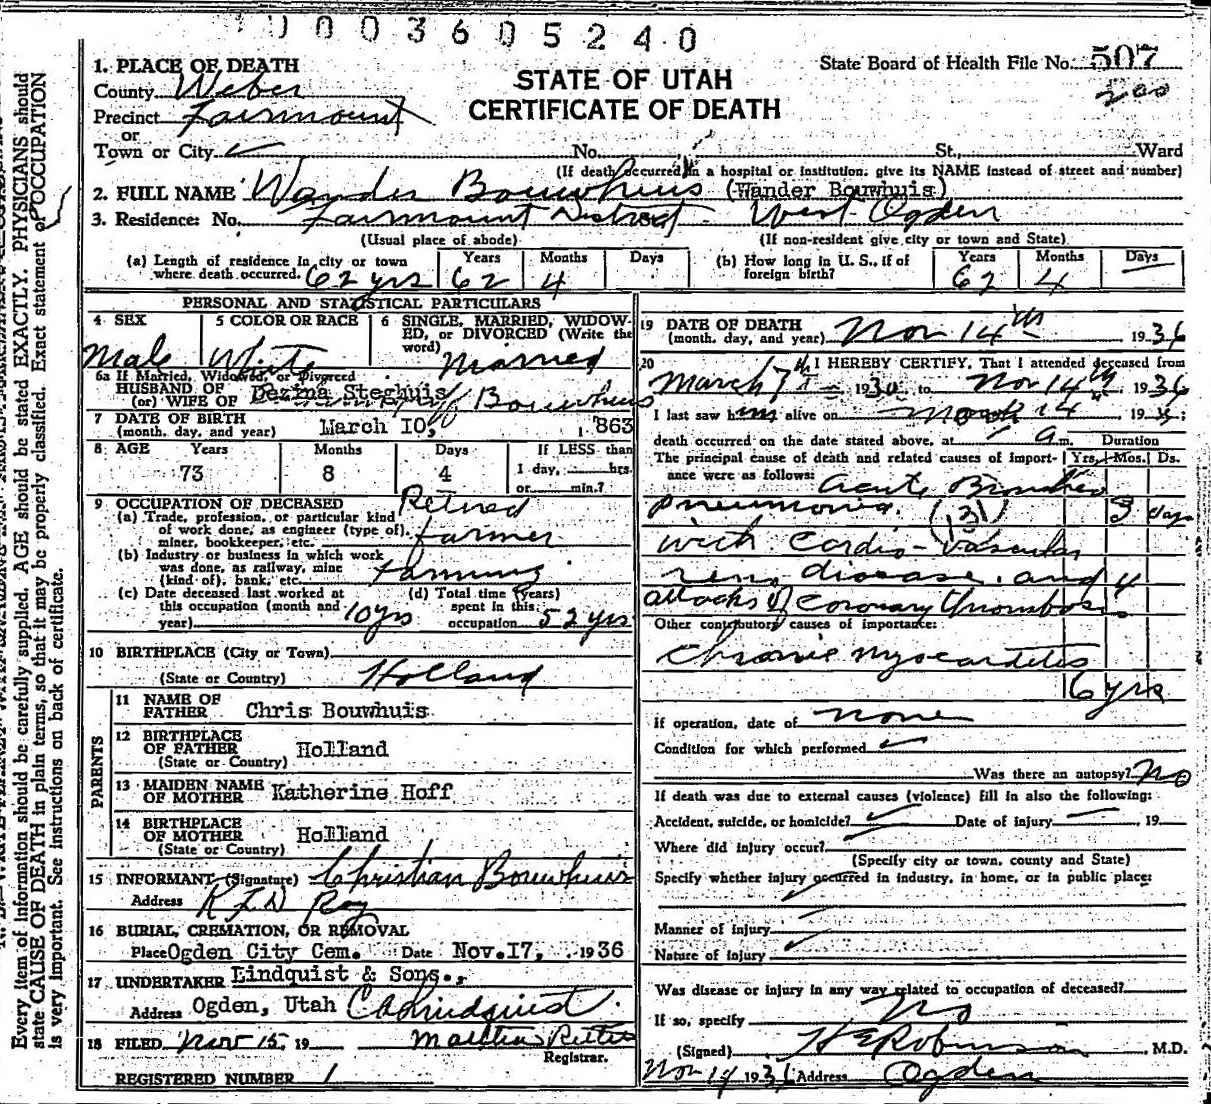 1003605240
STATE OF UTAH
CERTIFICATE OF DEATH
State Board of Health File No. 507
200
1. PLACE OF DEATH
County Weber
Precinct Fairmount
or
Town or City No. St., Ward
(If death occurred in a hospital or institution, give its NAME instead of street and number)
2. FULL NAME Wander Bouwhuis (Wander Bouwhuis)
3. Residence: No. Fairmount District West Ogden
(Usual place of abode) (If non-resident give city or town and State)
(a) Length of residence in city or town where death occurred. 62 yrs Years 62 Months 4 Days
(b) How long in U. S., if of foreign birth? Years 62 Months 4 Days
PERSONAL AND STATISTICAL PARTICULARS
4 SEX Male
5 COLOR OR RACE White
6 SINGLE, MARRIED, WIDOWED, or DIVORCED (Write the word) Married
6a If Married, Widowed, or Divorced
HUSBAND OF
(or) WIFE OF Dezina Steghuis Bouwhuis
7 DATE OF BIRTH
(month, day, and year) March 10, 1863
8 AGE Years 73 Months 8 Days 4 If LESS than 1 day, hrs. or min.?
9 OCCUPATION OF DECEASED
(a) Trade, profession, or particular kind of work done, as engineer (type of), miner, bookkeeper, etc. Retired farmer
(b) Industry or business in which work was done, as railway, mine (kind of), bank, etc. Farming
(c) Date deceased last worked at this occupation (month and year) 10 yrs
(d) Total time (years) spent in this occupation 52 yrs.
10 BIRTHPLACE (City or Town)
(State or Country) Holland
PARENTS
11 NAME OF FATHER Chris Bouwhuis
12 BIRTHPLACE OF FATHER Holland
(State or Country)
13 MAIDEN NAME OF MOTHER Katherine Hoff
14 BIRTHPLACE OF MOTHER Holland
(State or Country)
15 INFORMANT (Signature) Christian Bouwhuis
Address R F D Roy
16 BURIAL, CREMATION, OR REMOVAL
Place Ogden City Cem. Date Nov. 17, 1936
17 UNDERTAKER Lindquist & Sons.,
Address Ogden, Utah C A Lindquist
18 FILED Nov 15, 19
Registrar.
REGISTERED NUMBER 1
19 DATE OF DEATH
(month, day, and year) Nov 14th 1936
20 I HEREBY CERTIFY, That I attended deceased from
March 7th 1930 to Nov 14th 1936
I last saw him alive on 14 19
death occurred on the date stated above, at a m. Duration
The principal cause of death and related causes of importance were as follows: Yrs. Mos. Ds.
Acute Broncho
pneumonia. (131) 3 days
with Cardio-vascular
disease and 4
attacks of Coronary thrombosis
Other contributory causes of importance:
Chronic myocarditis
6 yrs
If operation, date of none
Condition for which performed
Was there an autopsy? No
If death was due to external causes (violence) fill in also the following:
Accident, suicide, or homicide? Date of injury , 19
Where did injury occur?
(Specify city or town, county and State)
Specify whether injury occurred in industry, in home, or in public place:
Manner of injury
Nature of injury
Was disease or injury in any way related to occupation of deceased?
If so, specify No
(Signed) H E Robinson , M.D.
Nov 14 1936 Address Ogden
Every item of information should be carefully supplied. AGE should be stated EXACTLY. PHYSICIANS should
state CAUSE OF DEATH in plain terms, so that it may be properly classified. Exact statement of OCCUPATION
is very important. See instructions on back of certificate.